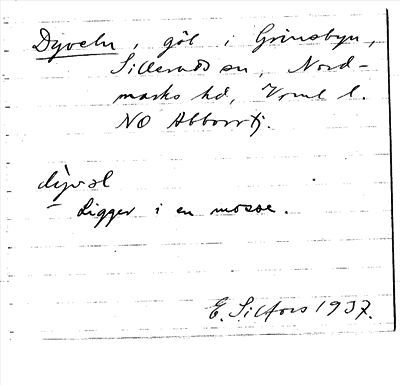 Dyveln, göl i Grinsbyn,
Silleruds sn, Nord-
marks hd, Vrml l.
NO Abborrtj.
dývəl
Ligger i en mosse.
E. Silfors 1937.